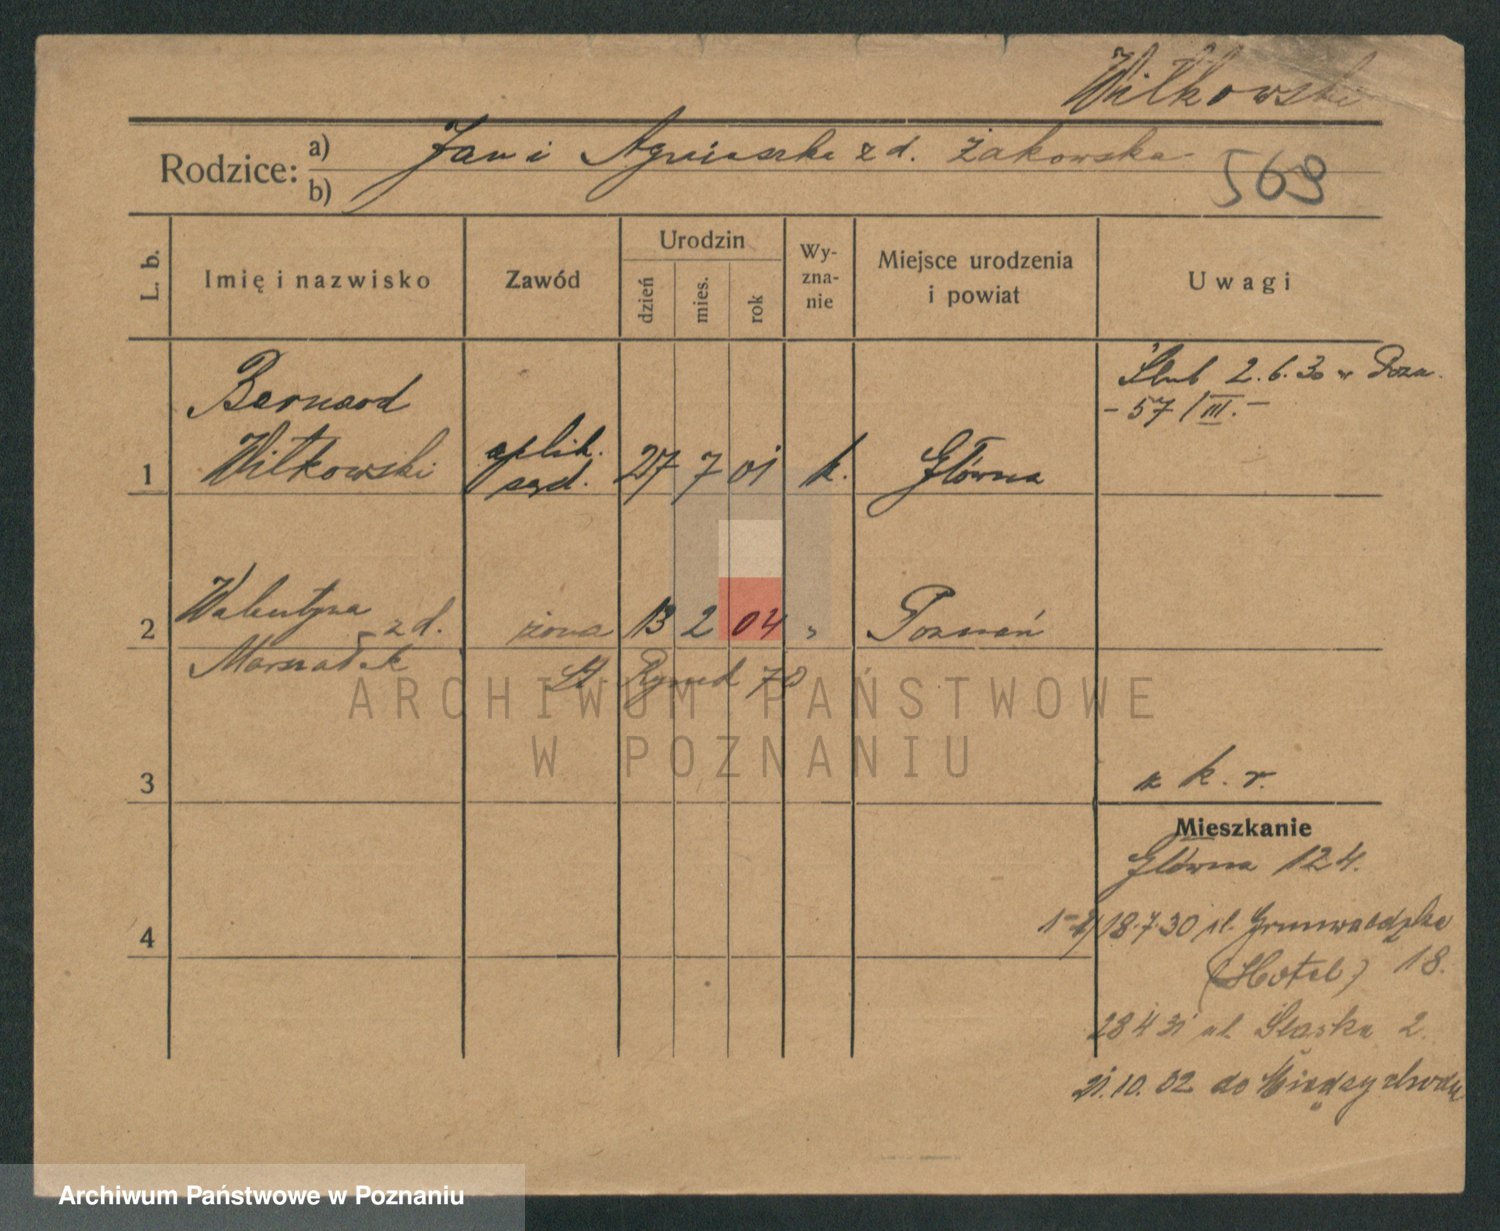 Witkowski
Rodzice: a) Jan i Agnieszka z d. Żakowska
b)
569
L. b.
Imię i nazwisko
Zawód
Urodzin
dzień
mies.
rok
Wy-
zna-
nie
Miejsce urodzenia
i powiat
Uwagi
Ślub 2.6.30 w Pozn.
- 57/III. -
Bernard
1 Witkowski aplik. sąd. 27 7 01 k. Główna
Walentyna
2 z d. żona 13 2 04 " Poznań
Marszałek
St. Rynek 78
ARCHIWUM PAŃSTWOWE
W POZNANIU
3
k. r.
Mieszkanie
Główna 124.
4
1-2/18.7.30 ul. Grunwaldzka
(Hotel) 18.
28 4 31 ul. Śląska 2.
21.10.32 do Międzychodu
Archiwum Państwowe w Poznaniu